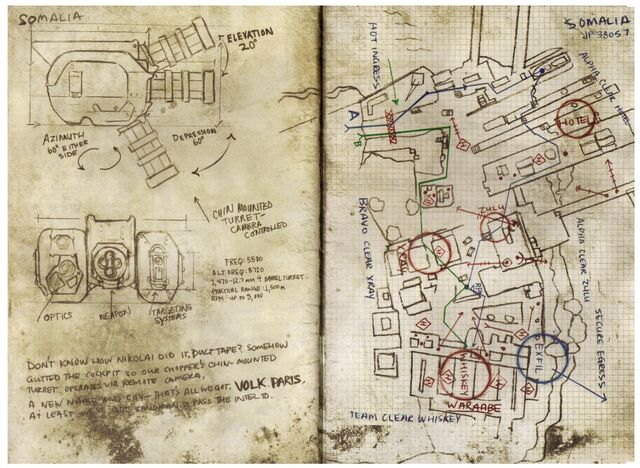 SOMALIA
ELEVATION
20°
AZIMUTH
60° EITHER
SIDE
DEPRESSION
60°
CHIN MOUNTED
TURRET-
CAMERA
CONTROLLED
FREQ: 5580
ALT FREQ: 8710
12.7MM 4 BARREL TURRET
PRACTICAL RANGE: 1,500M
RPM: UP TO 5,000
OPTICS
WEAPON
TARGETING
SYSTEMS
DON'T KNOW HOW NIKOLAI DID IT. DUCT TAPE? SOMEHOW
GUTTED THE COCKPIT SO OUR CHOPPER'S CHIN-MOUNTED
TURRET OPERATES VIA REMOTE CAMERA.
A NEW NAME AND CITY - THAT'S ALL WE GOT. VOLK. PARIS.
AT LEAST WE'VE GOT SANDMAN TO PASS THE INTEL TO.
SOMALIA
HOT INGRESS
A
B
ALPHA CLEAR HOTEL
HOTEL
BRAVO CLEAR XRAY
XRAY
ZULU
ALPHA CLEAR ZULU
SECURE EGRESS
EXFIL
WHISKEY
WARAABE
TEAM CLEAR WHISKEY